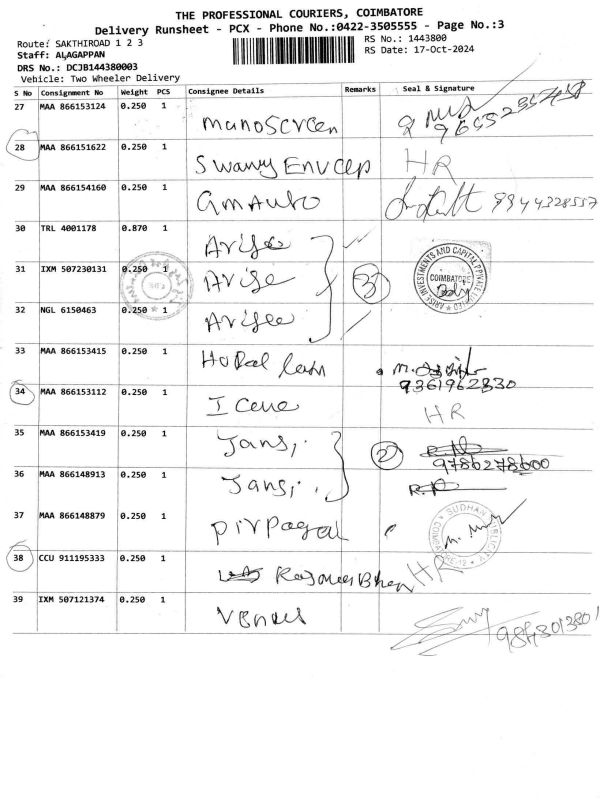 THE PROFESSIONAL COURIERS, COIMBATORE
Delivery Runsheet - PCX - Phone No.:0422-3505555 - Page No.:3
Route: SAKTHIROAD 1 2 3
RS No.: 1443800
Staff: ALAGAPPAN
RS Date: 17-Oct-2024
DRS No.: DCJB144380003
Vehicle: Two Wheeler Delivery
S No Consignment No Weight PCS Consignee Details Remarks Seal & Signature
27 MAA 866153124 0.250 1 manoscreen
28 MAA 866151622 0.250 1 HR
29 MAA 866154160 0.250 1 GM Auto 9944328557
30 TRL 4001178 0.870 1 Arise
31 IXM 507230131 0.250 1 Arise 3
ARISE INVESTMENTS AND CAPITAL PRIVATE LIMITED
COIMBATORE
32 NGL 6150463 0.250 1 Arise
33 MAA 866153415 0.250 1
9361962330
34 MAA 866153112 0.250 1 HR
35 MAA 866153419 0.250 1 Jansi 2
9786278600
36 MAA 866148913 0.250 1 Jansi
37 MAA 866148879 0.250 1
SUDHAN
38 CCU 911195333 0.250 1 HR
39 IXM 507121374 0.250 1 Venus